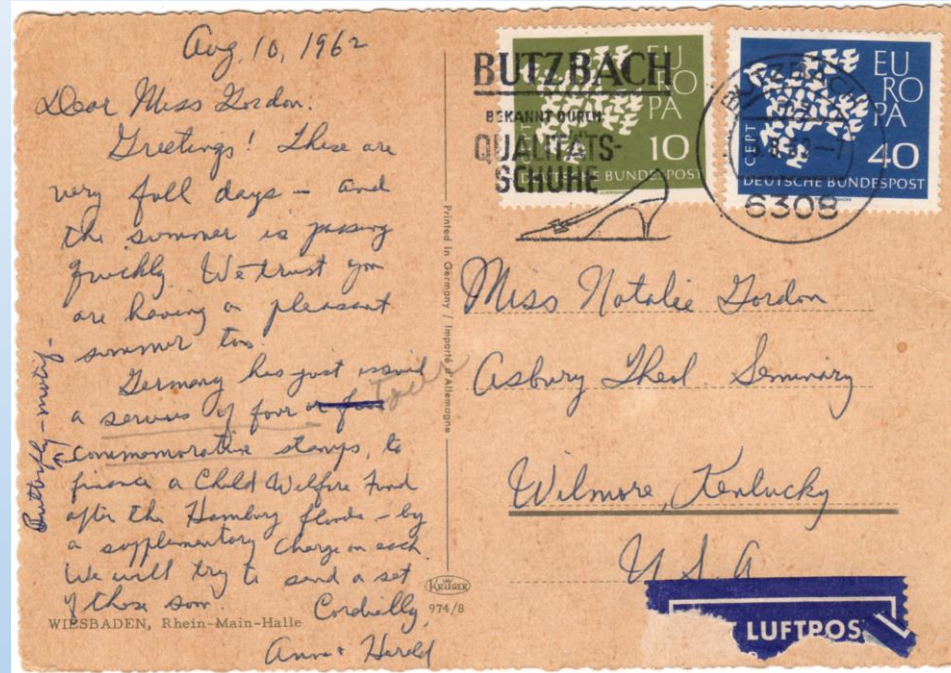 Aug, 10, 1962
Dear Miss Gordon.
Greetings! These are
very full days - and
the summer is passing
quickly We trust you
are having a pleasant
summer too.
Germany has just issued
a series of four or five Four
commemorative stamps, to
finance a Child Welfare Fund
after the Hamburg floods - by
a supplementary charge on each.
We will try to send a set
of these soon.
Cordially,
Anna + Harold
Butterfly-motif-
WIESBADEN, Rhein-Main-Halle
Printed in Germany / Importé d'Allemagne
KRÜGER
974/8
BUTZBACH
BEKANNT DURCH
QUALITÄTS-
SCHUHE
EUROPA
10
DEUTSCHE BUNDESPOST
BUTZBACH
6308
EUROPA
CEPT
40
DEUTSCHE BUNDESPOST
Miss Natalie Gordon
Asbury Theol. Seminary
Wilmore, Kentucky
USA
LUFTPOS